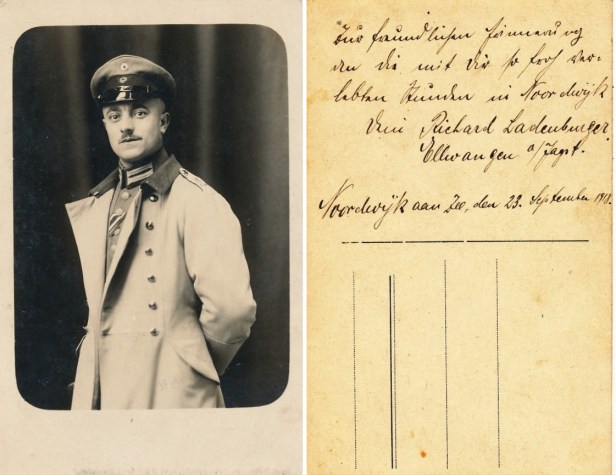 Zur freundlichen Erinnerung
an die mit Dir so froh ver-
lebten Stunden in Noordwijk
Dein Richard Ladenburger.
Ellwangen a/Jagst.
Noordwijk aan Zee, den 23. September 1918.